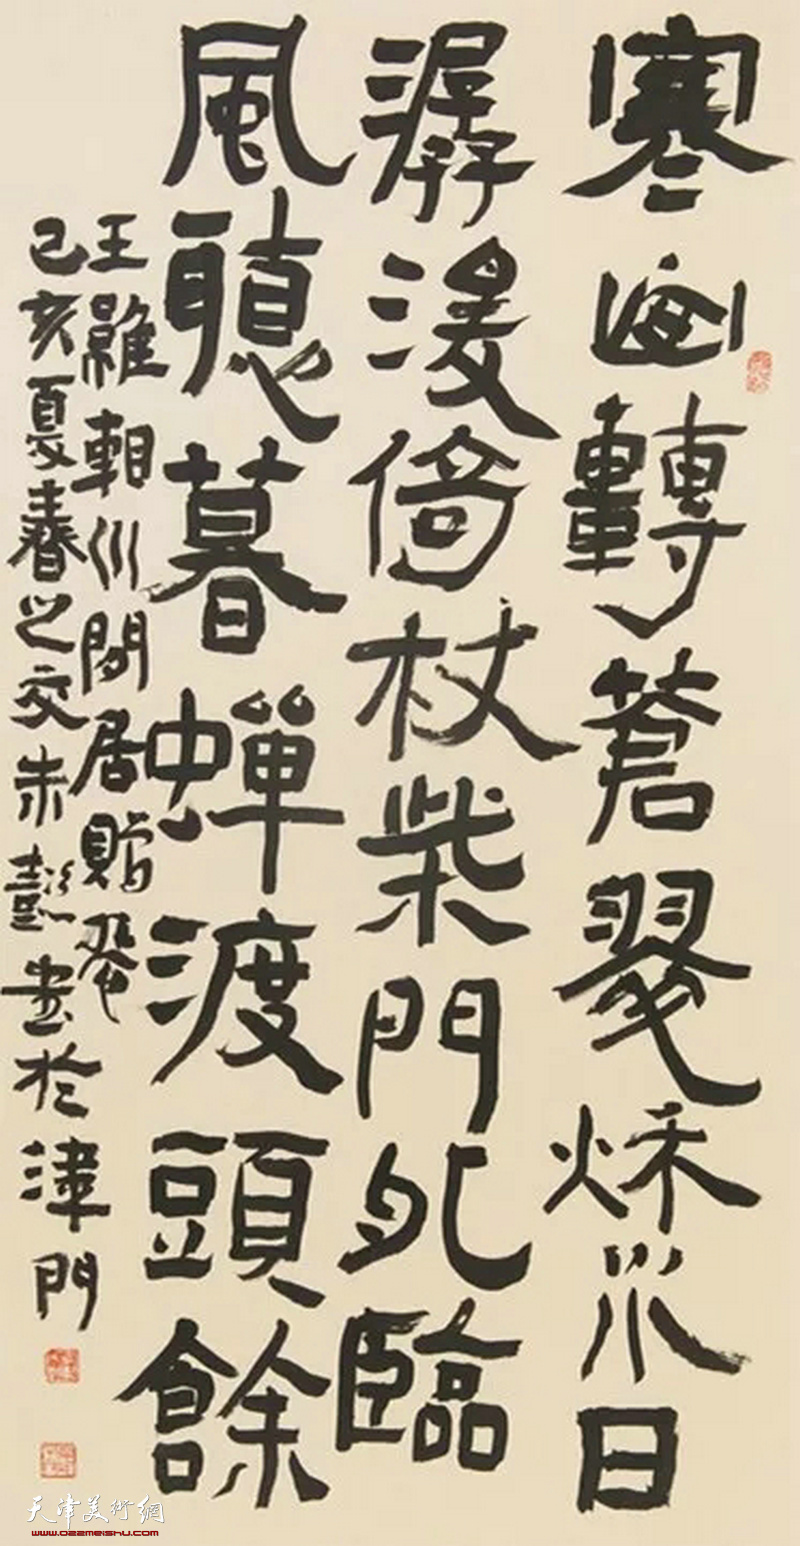 寒山轉蒼翠秋水日
潺湲倚杖柴門外臨
風聽暮蟬渡頭餘
王維輞川閒居贈裴
己亥夏春之交朱懿書於津門
天津美術網
www.022meishu.com